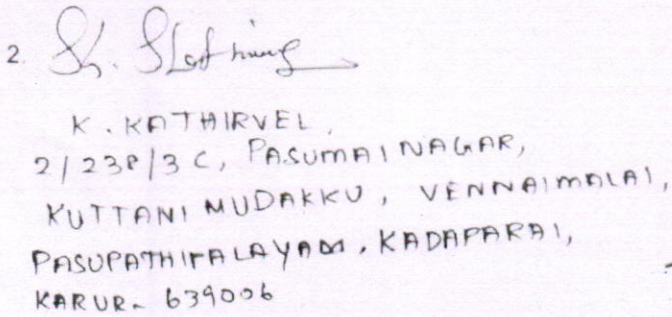 2.
K. KATHIRVEL,
2/238/3C, PASUMAI NAGAR,
KUTTANI MUDAKKU, VENNAIMALAI,
PASUPATHIPALAYAM, KADAPARAI,
KARUR- 639006